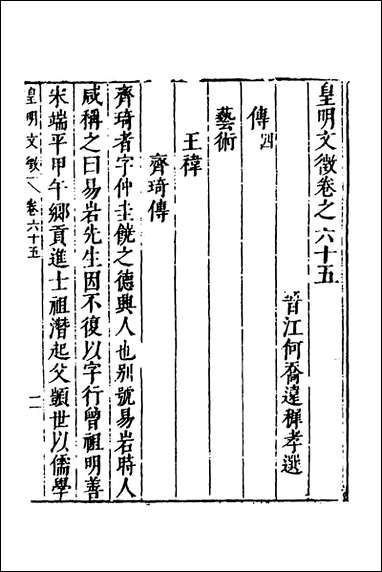 皇明文徵卷之六十五
晉江何喬遠穉孝選
傳四
藝術
王褘
齊琦傳
齊琦者字仲圭饒之德興人也别號易岩時人
咸稱之曰易岩先生因不復以字行曾祖明善
宋端平甲午鄉貢進士祖潛起父顗世以儒學
皇明文徵 卷六十五 一